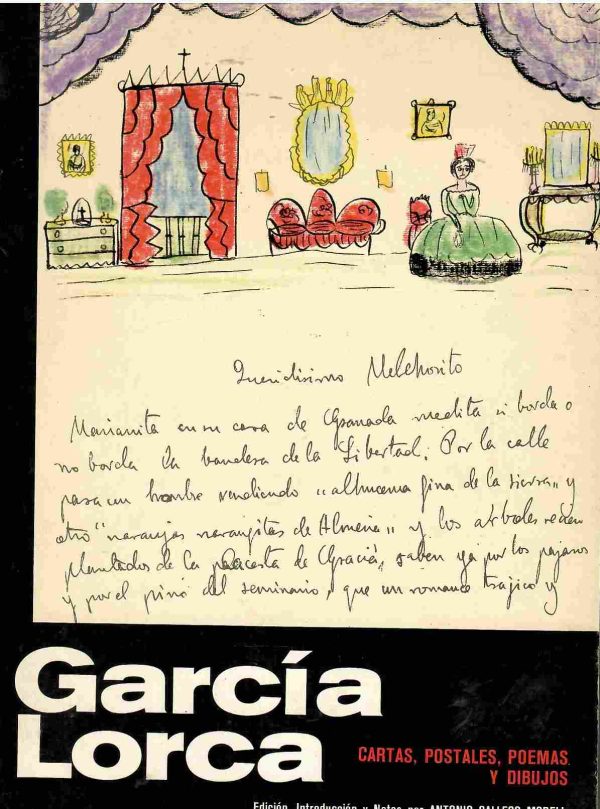 Queridisimo Melchorito
Marianita en su casa de Granada medita si borda o
no borda la bandera de la Libertad. Por la calle
pasa un hombre vendiendo "alhucema fina de la sierra" y
otro "naranjas naranjitas de Almeria" y los arboles recien
plantados de la placeta de Gracia, saben ya por los pajaros
y por el pino del seminario, que un romance trajico y
García
Lorca
CARTAS, POSTALES, POEMAS
Y DIBUJOS
Edición, Introducción y Notas por ANTONIO GALLEGO MORELL